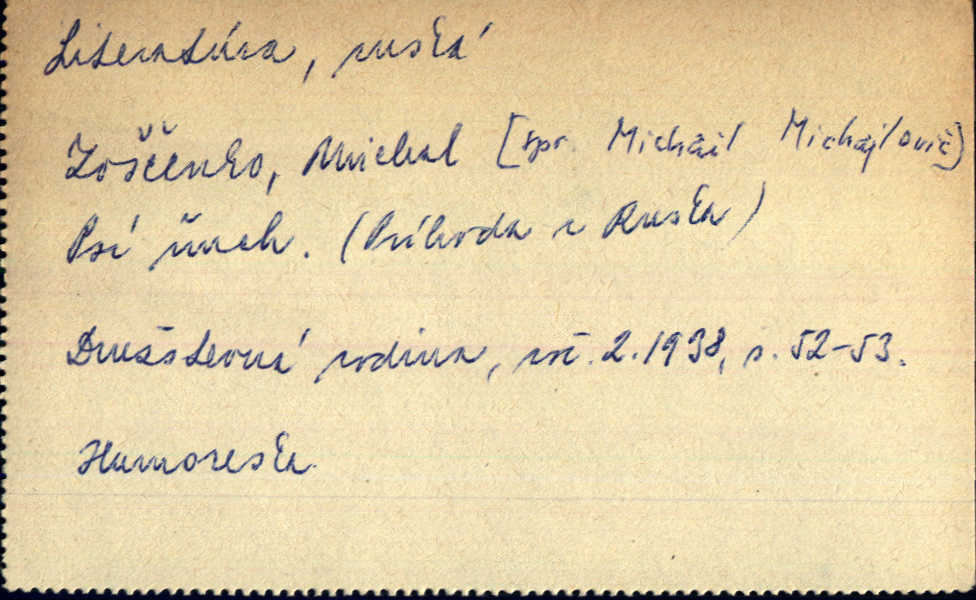 Literatúra, ruská
Zoščenko, Michal [spr. Michail Michajlovič]
Psí čuch. (Príhoda z Ruska)
Družstevná rodina, roč. 2. 1938, s. 52-53.
Humoreska